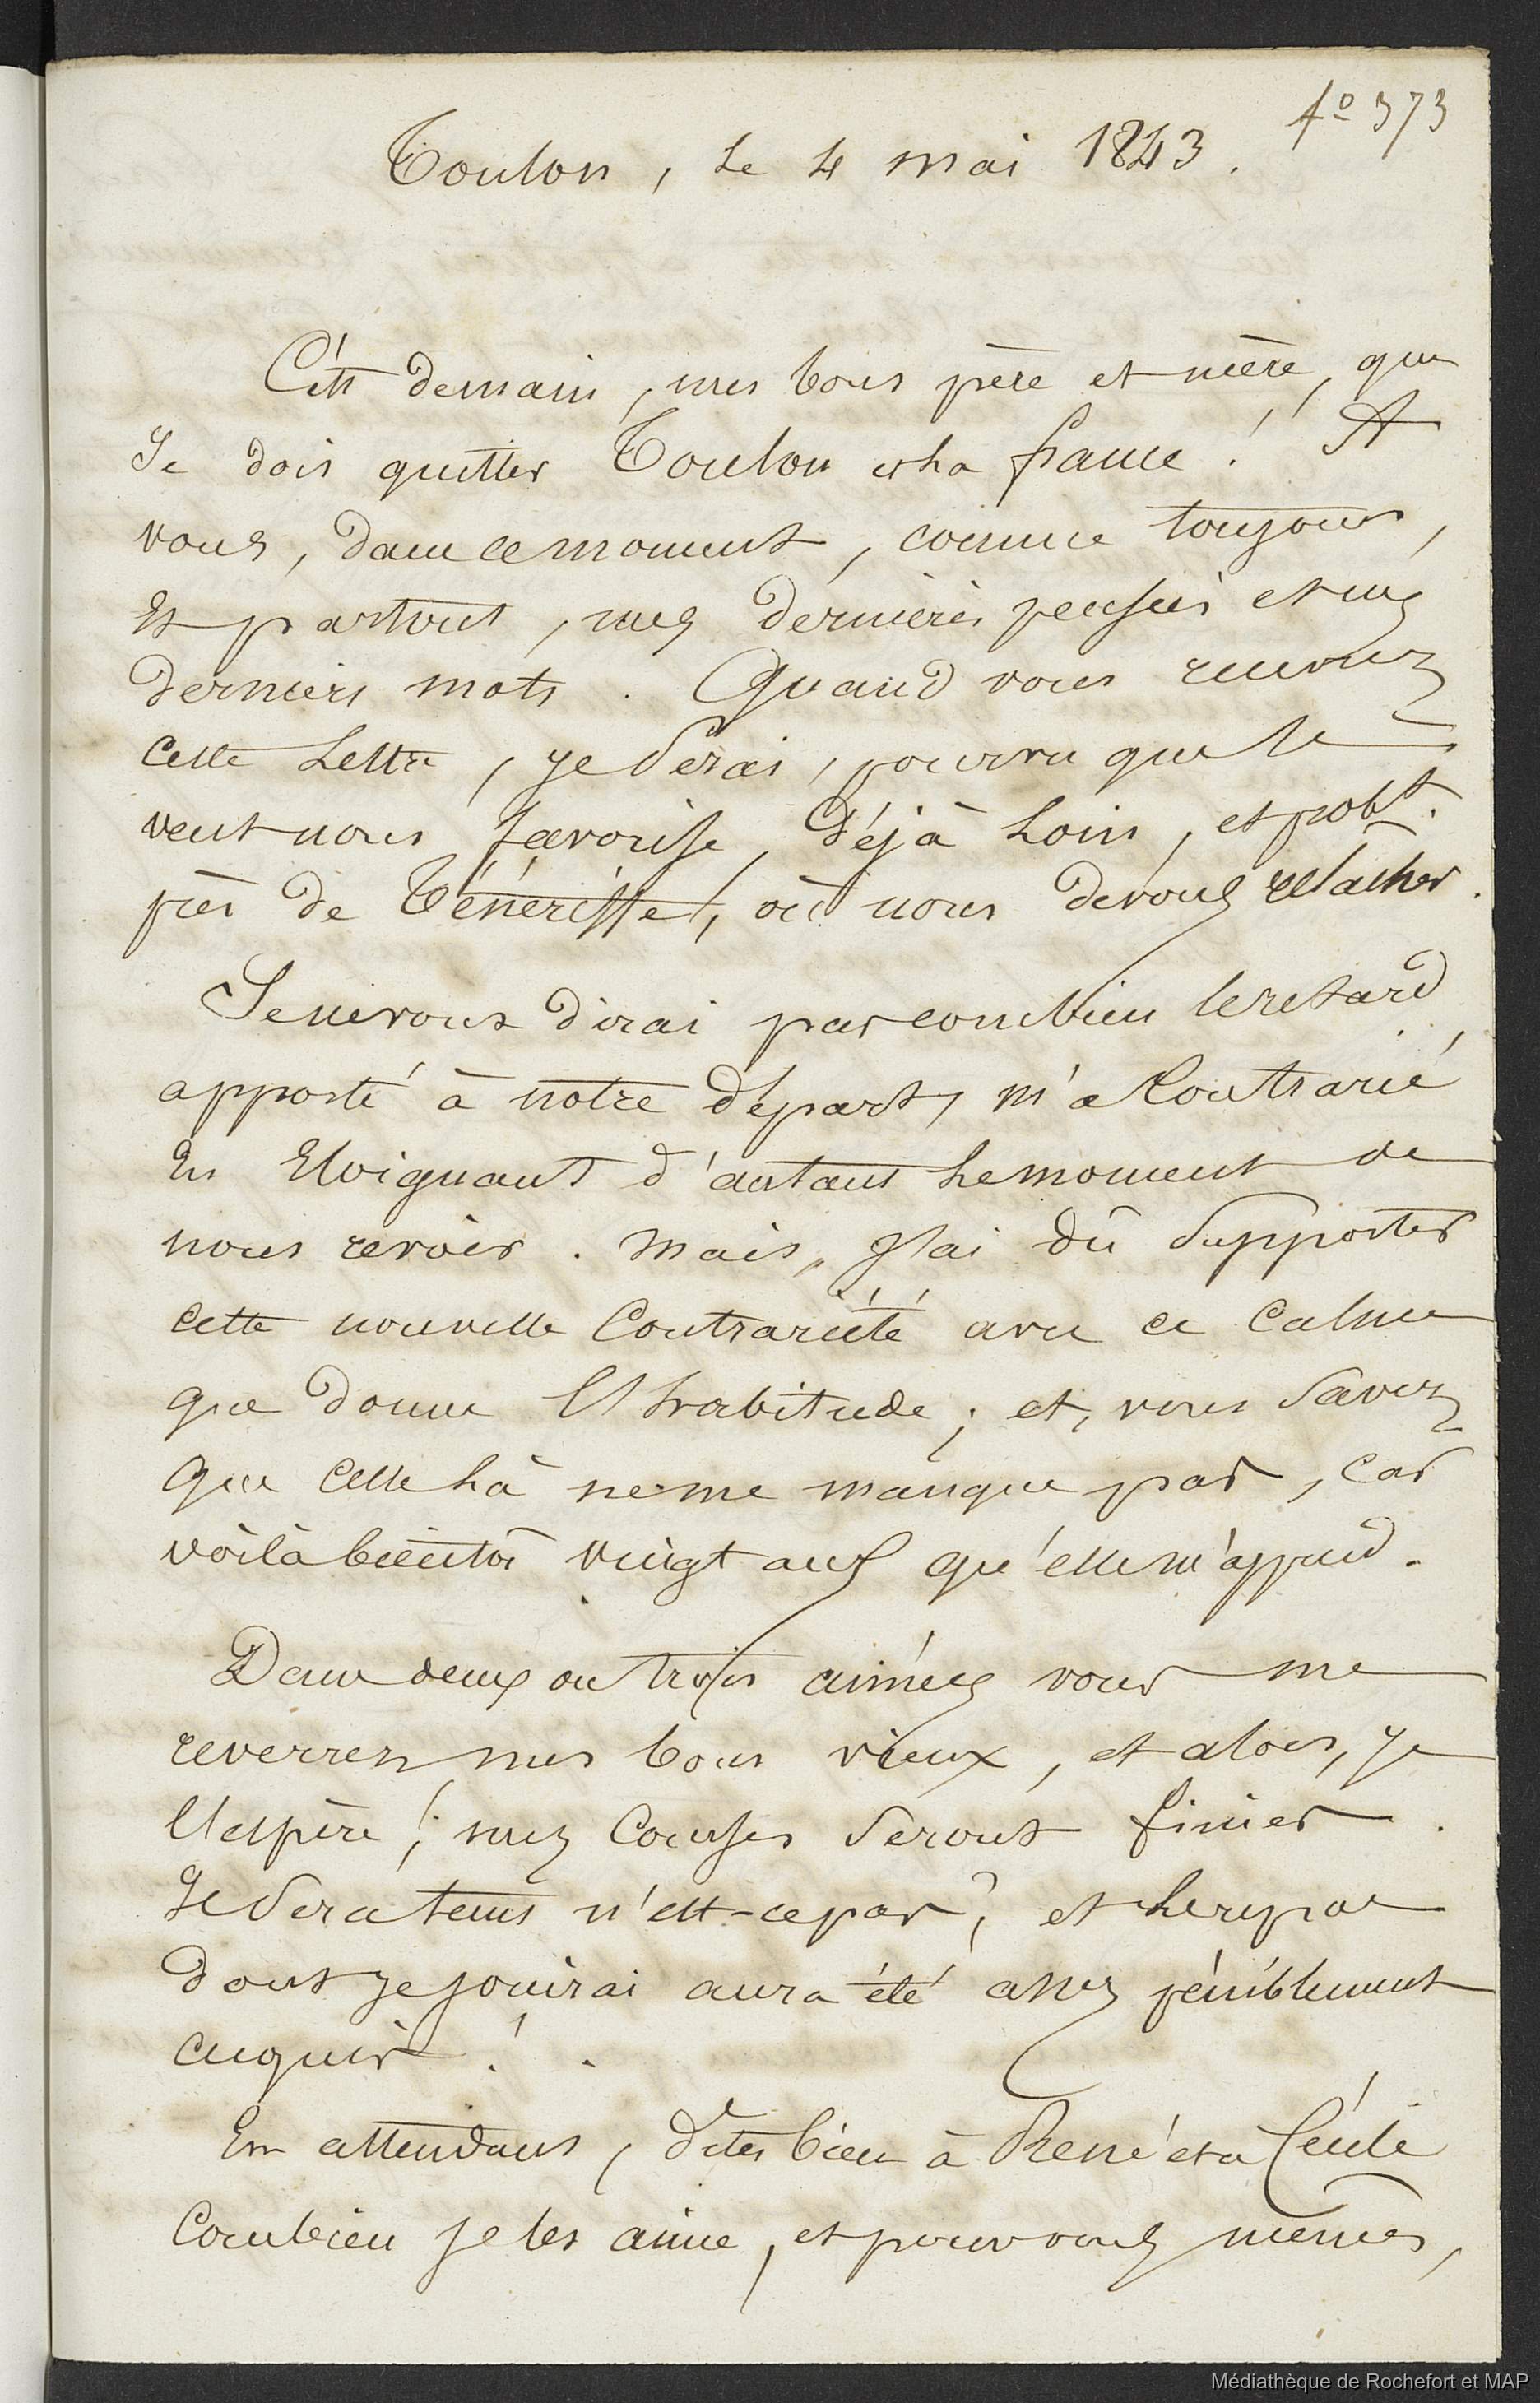 fo 373
Toulon, le 4 mai 1843.
C'est demain, mes bons père et mère, que
Je dois quitter Toulon et la france ! A
vous, dans ce moment, comme toujours,
Et partout, mes dernières pensées et mes
derniers mots. Quand vous recevrez
cette Lettre, je Serai, pourvu que le
vent nous favorise, Déjà Loin, et probt.
près de Ténériffe, où nous devons relâcher.
Je ne vous dirai pas combien le retard,
apporté à notre départ, m'a Contrarié
En Eloignant d'autant Le moment de
nous revoir. Mais, J'ai dû Supporter
cette nouvelle Contrariété avec ce Calme
que donne l'habitude ; et, vous Savez
que celle là ne me manque pas, car
voilà bientôt vingt ans qu'elle m'apprend.
Dans deux ou trois années vous me
reverrez mes bons vieux, et alors, je
l'espère, mes Courses Seront finies.
Il Sera tems n'est-ce pas ? et Le repos
dont je jouirai aura été assez péniblement
acquis !.
En attendant, dites bien à René et à
Combien Je les aime, et pour vous mêmes,
Médiathèque de Rochefort et MAP